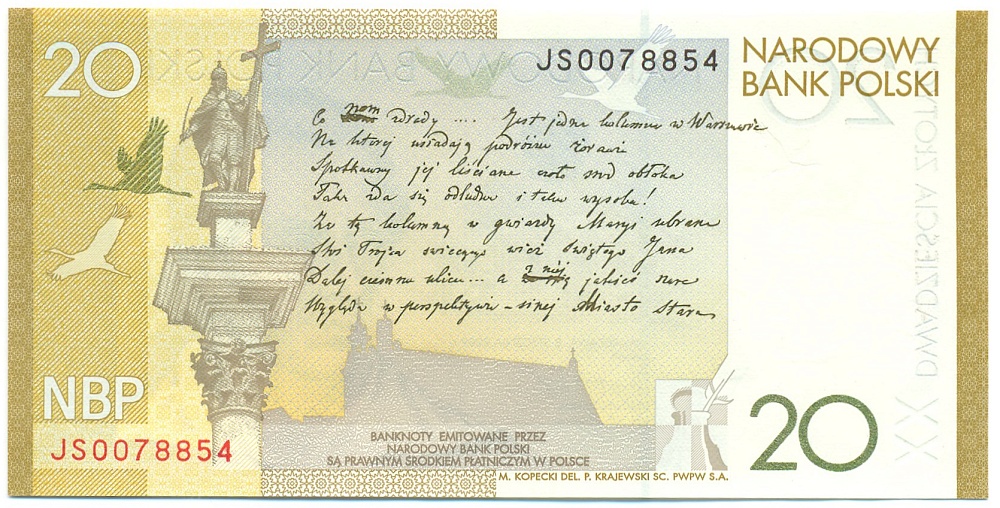 20
JS0078854
NARODOWY
BANK POLSKI
Co nam zdrady .... Jest jedna kolumna w Warszawie
Na ktorej usiadają podróżne żorawie
Spotkawszy jej liściane czoło środ obłoka
Taka zda się odludna i taka wysoka!
Za tą kolumną w gwiazdy Maryi ubrana
Stoi Trojca swiecących wież Świętego Jana
Dalej ciemna ulica... a z niej jakieś szare
Wygląda w perspektywie - sinej Miasto Stare
NBP
JS0078854
BANKNOTY EMITOWANE PRZEZ
NARODOWY BANK POLSKI
SĄ PRAWNYM ŚRODKIEM PŁATNICZYM W POLSCE
M. KOPECKI DEL. P. KRAJEWSKI SC. PWPW S.A.
20